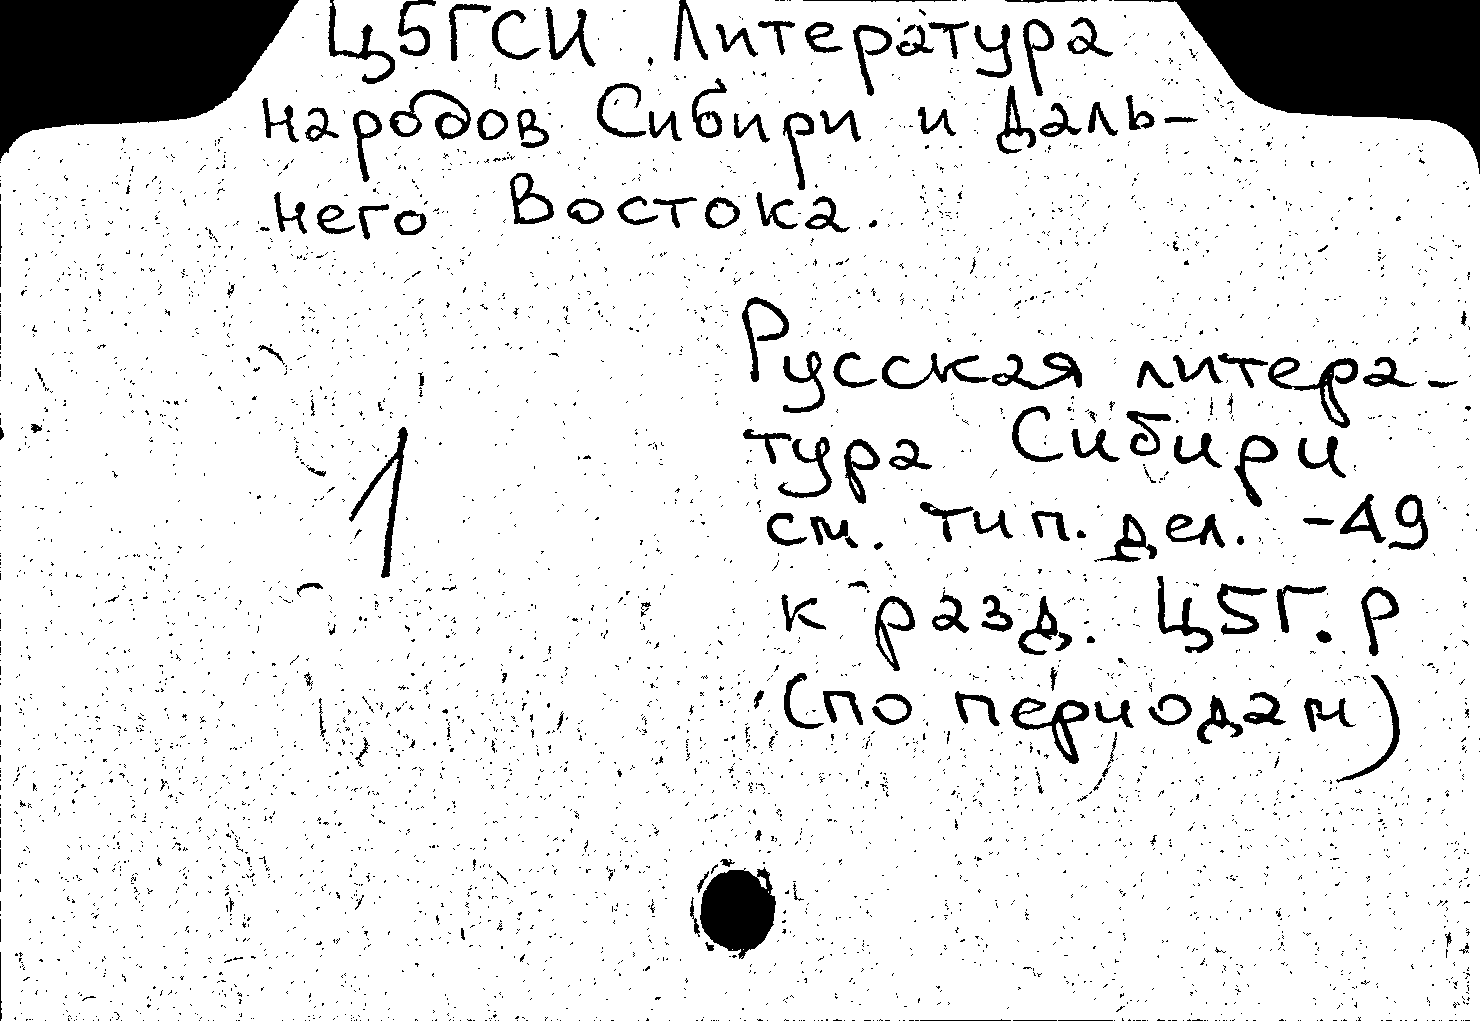 Ц5ГСИ. Литература
народов Сибири и Даль-
него Востока.
Русская литера-
тура Сибири
1
см. тип. дел. -49
к разд. Ц5Г.р
(по периодам)